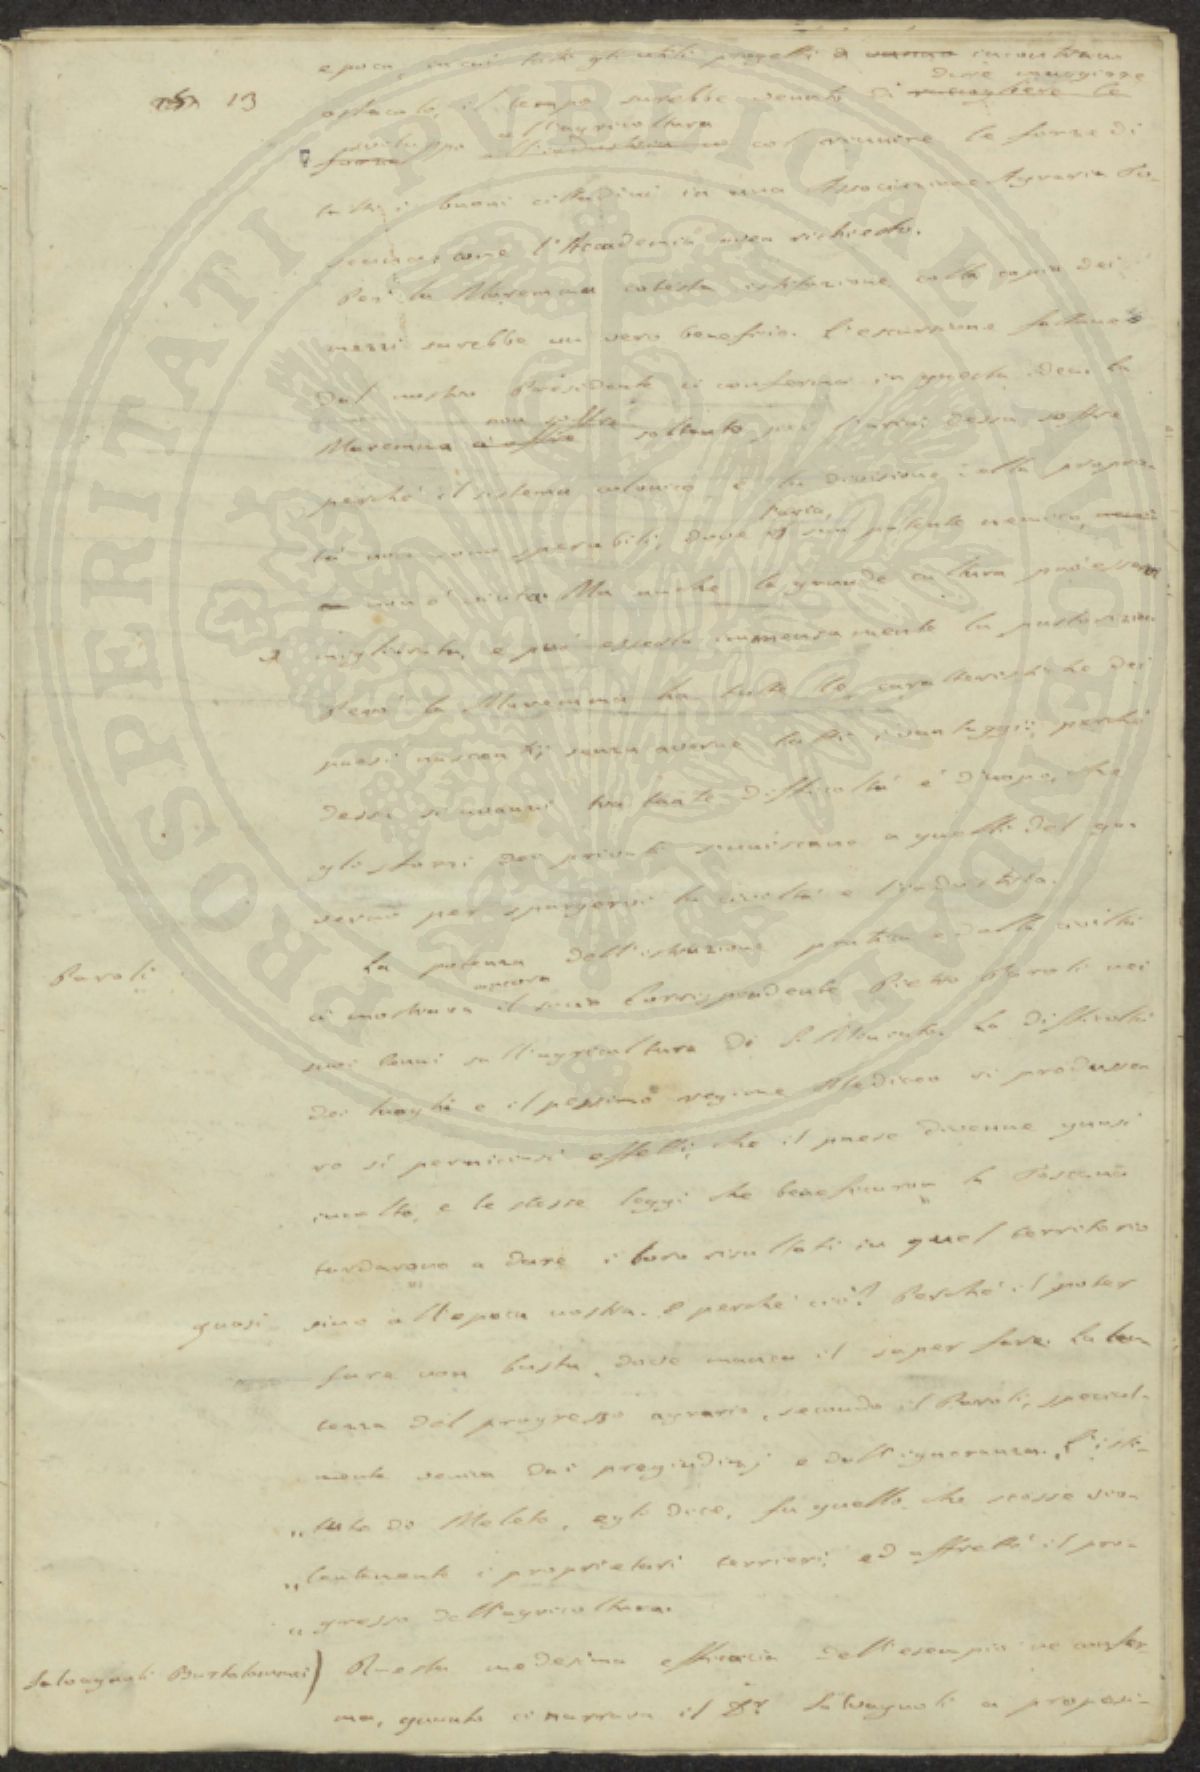 epoca, in cui tutti gli utili progetti vanno incontrano
dare maggiore
13
ostacolo, il tempo sarebbe venuto di raccogliere le
sviluppo all'agricoltura
forze all'industria col riunire le forze di
tutti i buoni cittadini in una Associazione Agraria To-
scana, come l'Accademia avea richiesto.
Per la Maremma cotesta istituzione colla copia dei
mezzi sarebbe un vero beneficio. L'escursione fattane
dal nostro Presidente ci conferma in questa idea. La
non soffre
Maremma soltanto per l'aria; dessa soffre
perché il sistema colonico e la divisione della proprie-
l'aria,
tà non sono sperabili, dove sua potente nemica,
non è vinta. Ma anche la grande cultura può essere
migliorata, e può esserlo immensamente la pastorizia.
Però la Maremma ha tutte le caratteristiche dei
paesi nascenti, senza averne tutti i vantaggi; perché
dessa si avanzi tra tante difficoltà è d'uopo, che
gli sforzi dei privati si uniscano a quelli del go-
verno per spargervi la civiltà e l'industria.
Paroli
La potenza dell'istruzione pratica e della civiltà
ancora
ci mostrava il socio Corrispondente Pietro Paroli nei
suoi Cenni sull'agricoltura di S. Miniato. La difficoltà
dei luoghi e il pessimo regime Mediceo vi produsse-
ro sì perniciosi effetti, che il paese divenne quasi
incolto, e le stesse leggi che beneficarono la Toscana
tardarono a dare i loro risultati in quel territorio
quasi
sino all'epoca nostra. E perché ciò? Perché il poter
fare non basta, dove manca il saper fare. La len-
tezza del progresso agrario, secondo il Paroli, special-
mente veniva dai pregiudizj e dall'ignoranza. L'isti-
„tuto di Meleto, egli dice, fu quello che scosse vio-
„lentemente i proprietari terrieri, ed affrettò il pro-
„gresso dell'agricoltura.
Salvagnoli Bartolommei)
Questa medesima efficacia dell'esempio ne confer-
ma, quanto ci narrava il Dr. Salvagnoli a proposi-